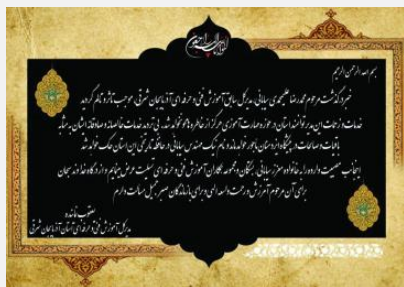 انا لله و انا الیه راجعون
بسم الله الرحمن الرحیم
خبر درگذشت مرحوم محمدرضا علیمحمدی سایبانی، مدیرکل سابق آموزش فنی و حرفه ای آذربایجان شرقی، موجب تاثر و تالم گردید
خدمات و زحمات این مدیر توانمند استان در حوزه مهارت آموزی هرگز از خاطره ها محو نخواهد شد. بی تردید، خدمات خالصانه و صادقانه ایشان، به مثابه
باقیات و صالحات در پیشگاه ایزدمنان ماجور خواهد ماند و نام نیک مهندس سایبانی در حافظه تاریخی این استان حک خواهد شد
اینجانب مصیبت وارده را به خانواده معزز سایبانی، بستگان و مجموعه همکاران آموزش فنی و حرفه ای تسلیت عرض مینمایم و از درگاه خداوند سبحان
برای آن مرحوم آمرزش و رحمت واسعه الهی و برای بازماندگان صبر جمیل مسالت دارم
یعقوب
مدیرکل آموزش فنی و حرفه ای استان آذربایجان شرقی